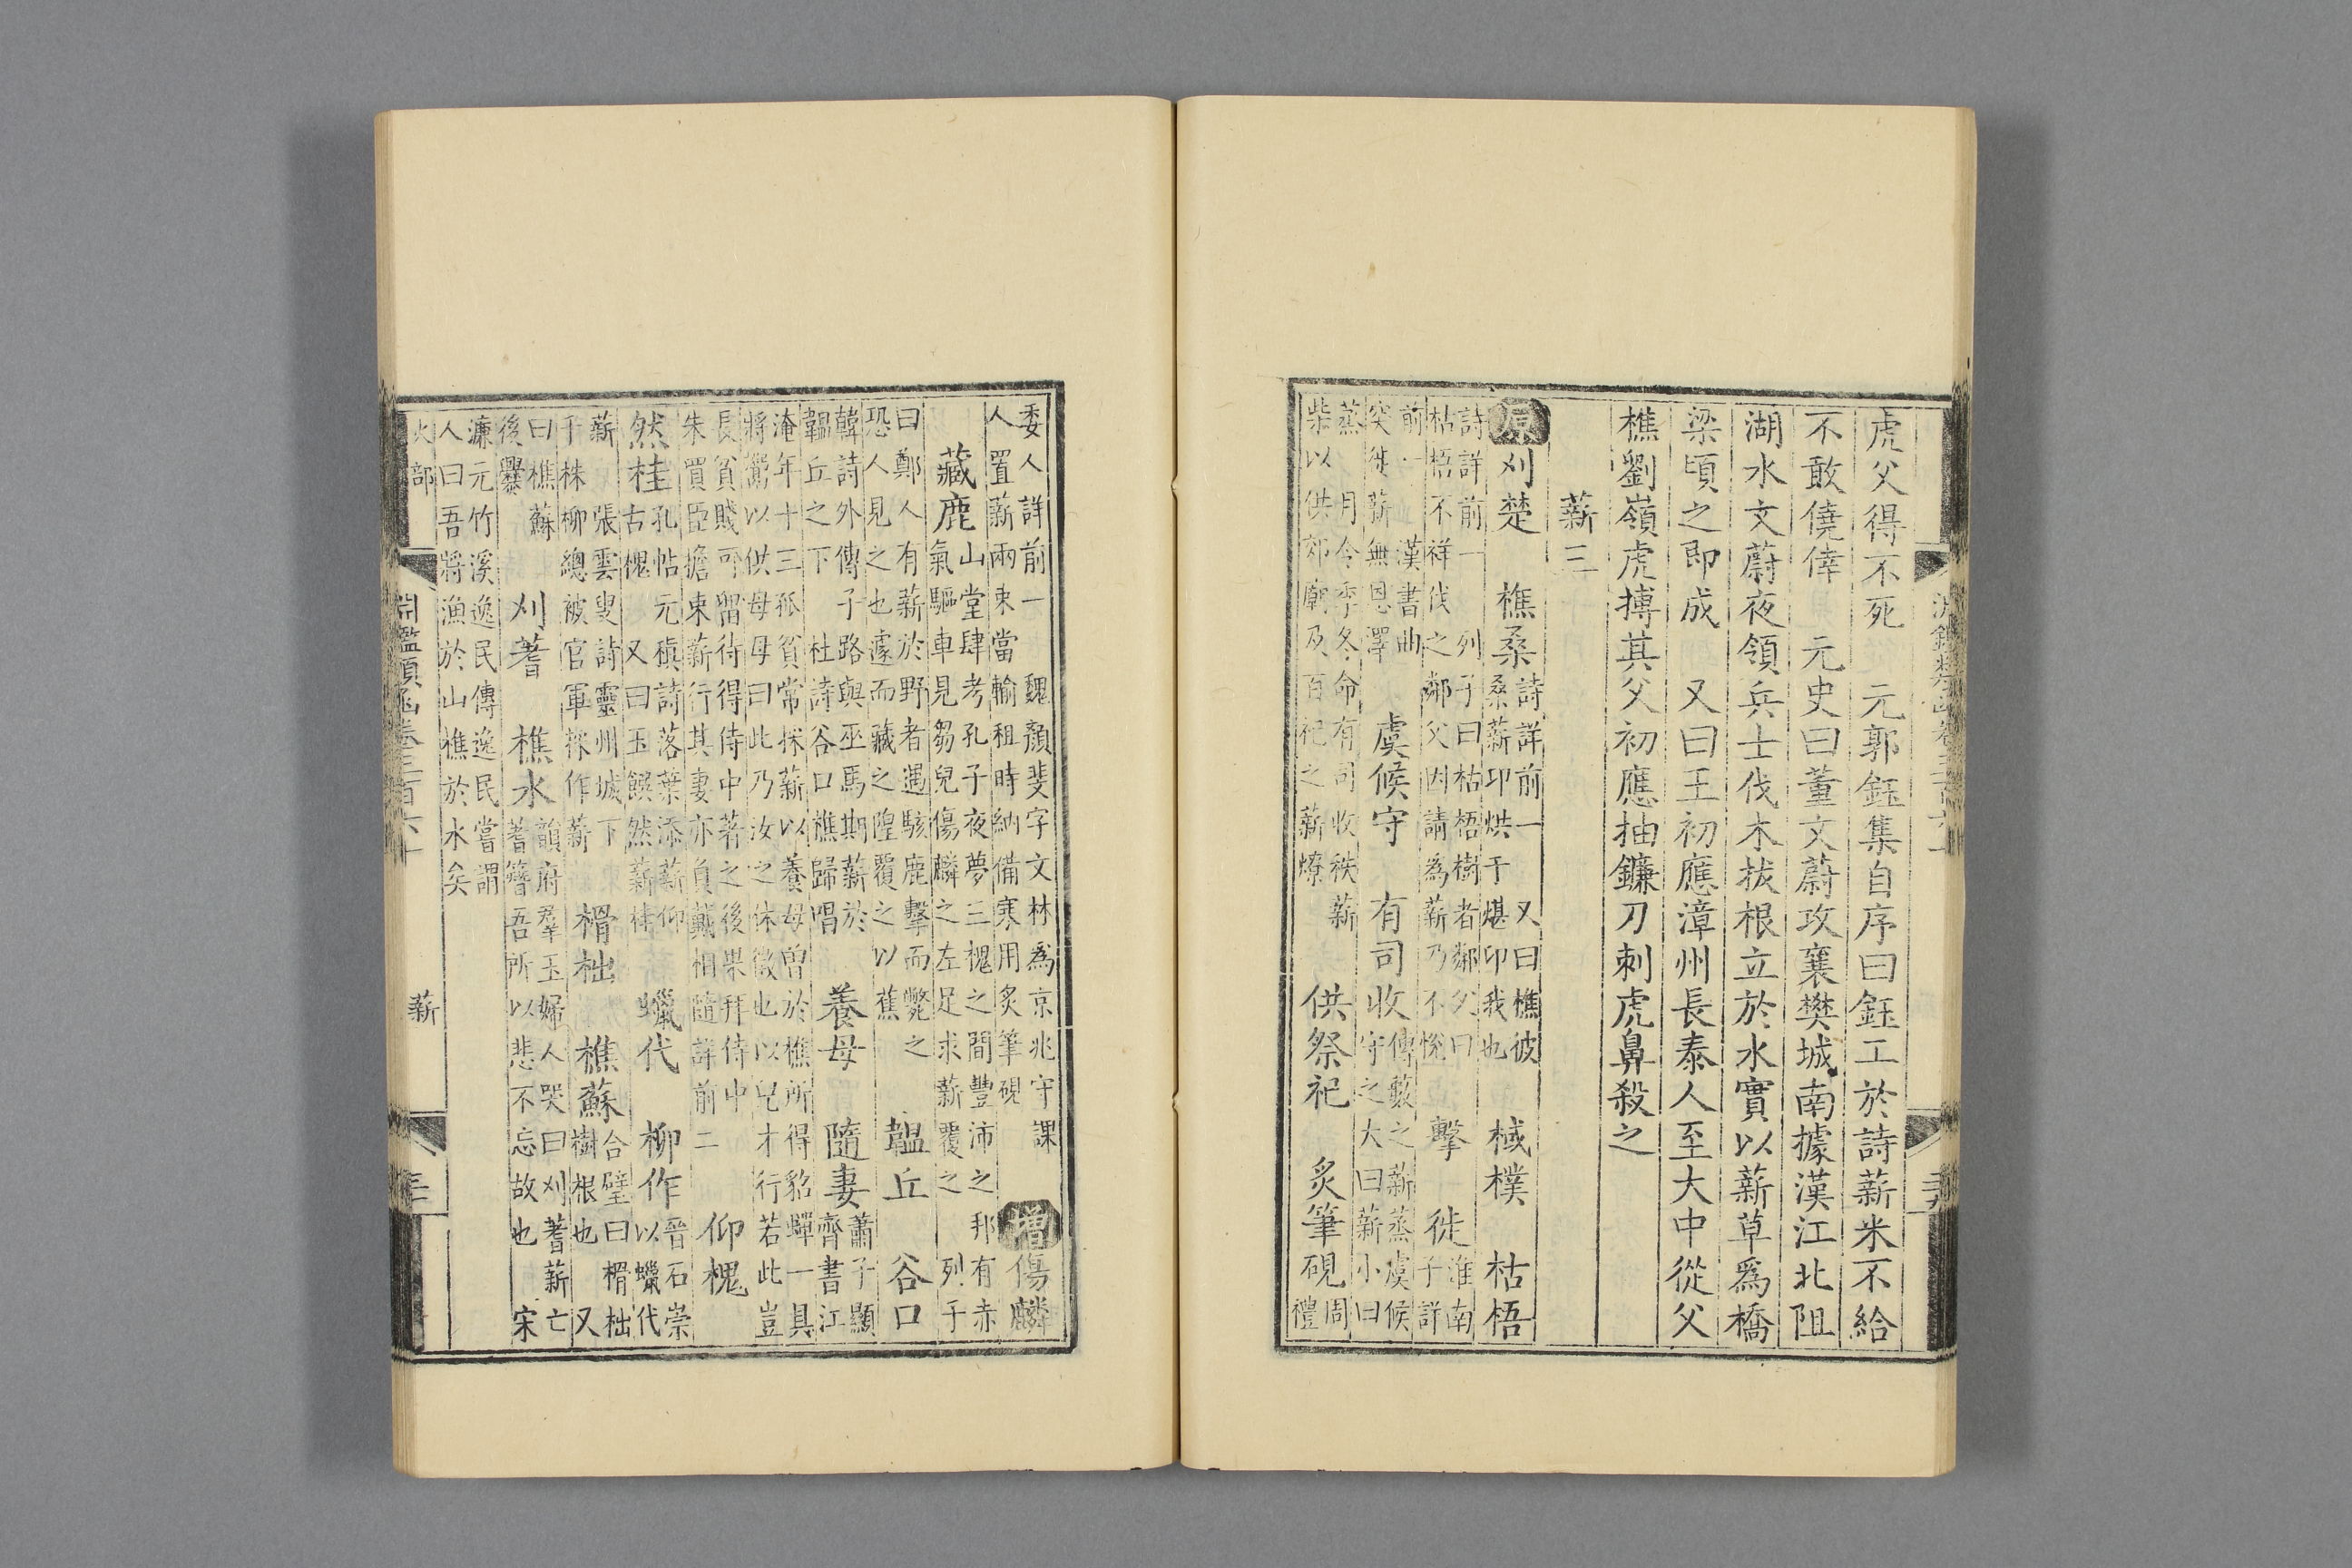 虎父得不死　元郭鈺集自序曰鈺工於詩薪米不給
不敢僥倖　元史曰董文蔚攻襄樊城南據漢江北阻
湖水文蔚夜領兵士伐木拔根立於水實以薪草爲橋
梁頃之即成　又曰王初應漳州長泰人至大中從父
樵劉嶺虎搏其父初應抽鐮刀刺虎鼻殺之
薪三
原刈楚　樵桑詩詳前一　又曰樵彼桑薪卬烘于堪卬我也　棫樸　枯梧
詩詳前一　列子曰枯梧樹者鄰父曰枯梧不祥伐之鄰父因請爲薪乃不悅　擊　徙淮南子詳
前一　漢書曲突徙薪無恩澤　虞候守　有司收傳藪之薪蒸虞候守之大曰薪小曰
蒸　月令季冬命有司收秩薪柴以供郊廟及百祀之薪燎　供祭祀　炙筆硯周禮
委人詳前一　魏顏斐字文林爲京兆守課人置薪兩束當輸租時納備寒用炙筆硯　增傷麟
藏鹿山堂肆考孔子夜夢三槐之間豐沛之邦有赤氣驅車見芻兒傷麟之左足求薪覆之　列子
曰鄭人有薪於野者遇駭鹿擊而斃之恐人見之也遽而藏之隍覆之以蕉　韞丘　谷口
韓詩外傳子路與巫馬期薪於韞丘之下　杜詩谷口樵歸唱　養母　隨妻蕭子顯齊書江
淹年十三孤貧常採薪以養母曾於樵所得貂蟬一具將鬻以供母母曰此乃汝之休徵也以兒才行若此豈
長貧賤可留待得侍中著之後果拜侍中朱買臣擔束薪行其妻亦負戴相隨詳前二　仰槐
然桂孔帖元稹詩落葉添薪仰古槐　又曰玉饌然薪桂　蠟代　柳作晉石崇以蠟代
薪　張雲叟詩靈州城下千株柳總被官軍採作薪　榾柮　樵蘇合璧曰榾柮樹根也　又
曰樵蘇後爨　刈蓍　樵水韻府羣玉婦人哭曰刈蓍薪亡蓍簪吾所以悲不忘故也　宋
濂元竹溪逸民傳逸民嘗謂人曰吾將漁於山樵於水矣
火部　淵鑑類函卷三百六十　薪